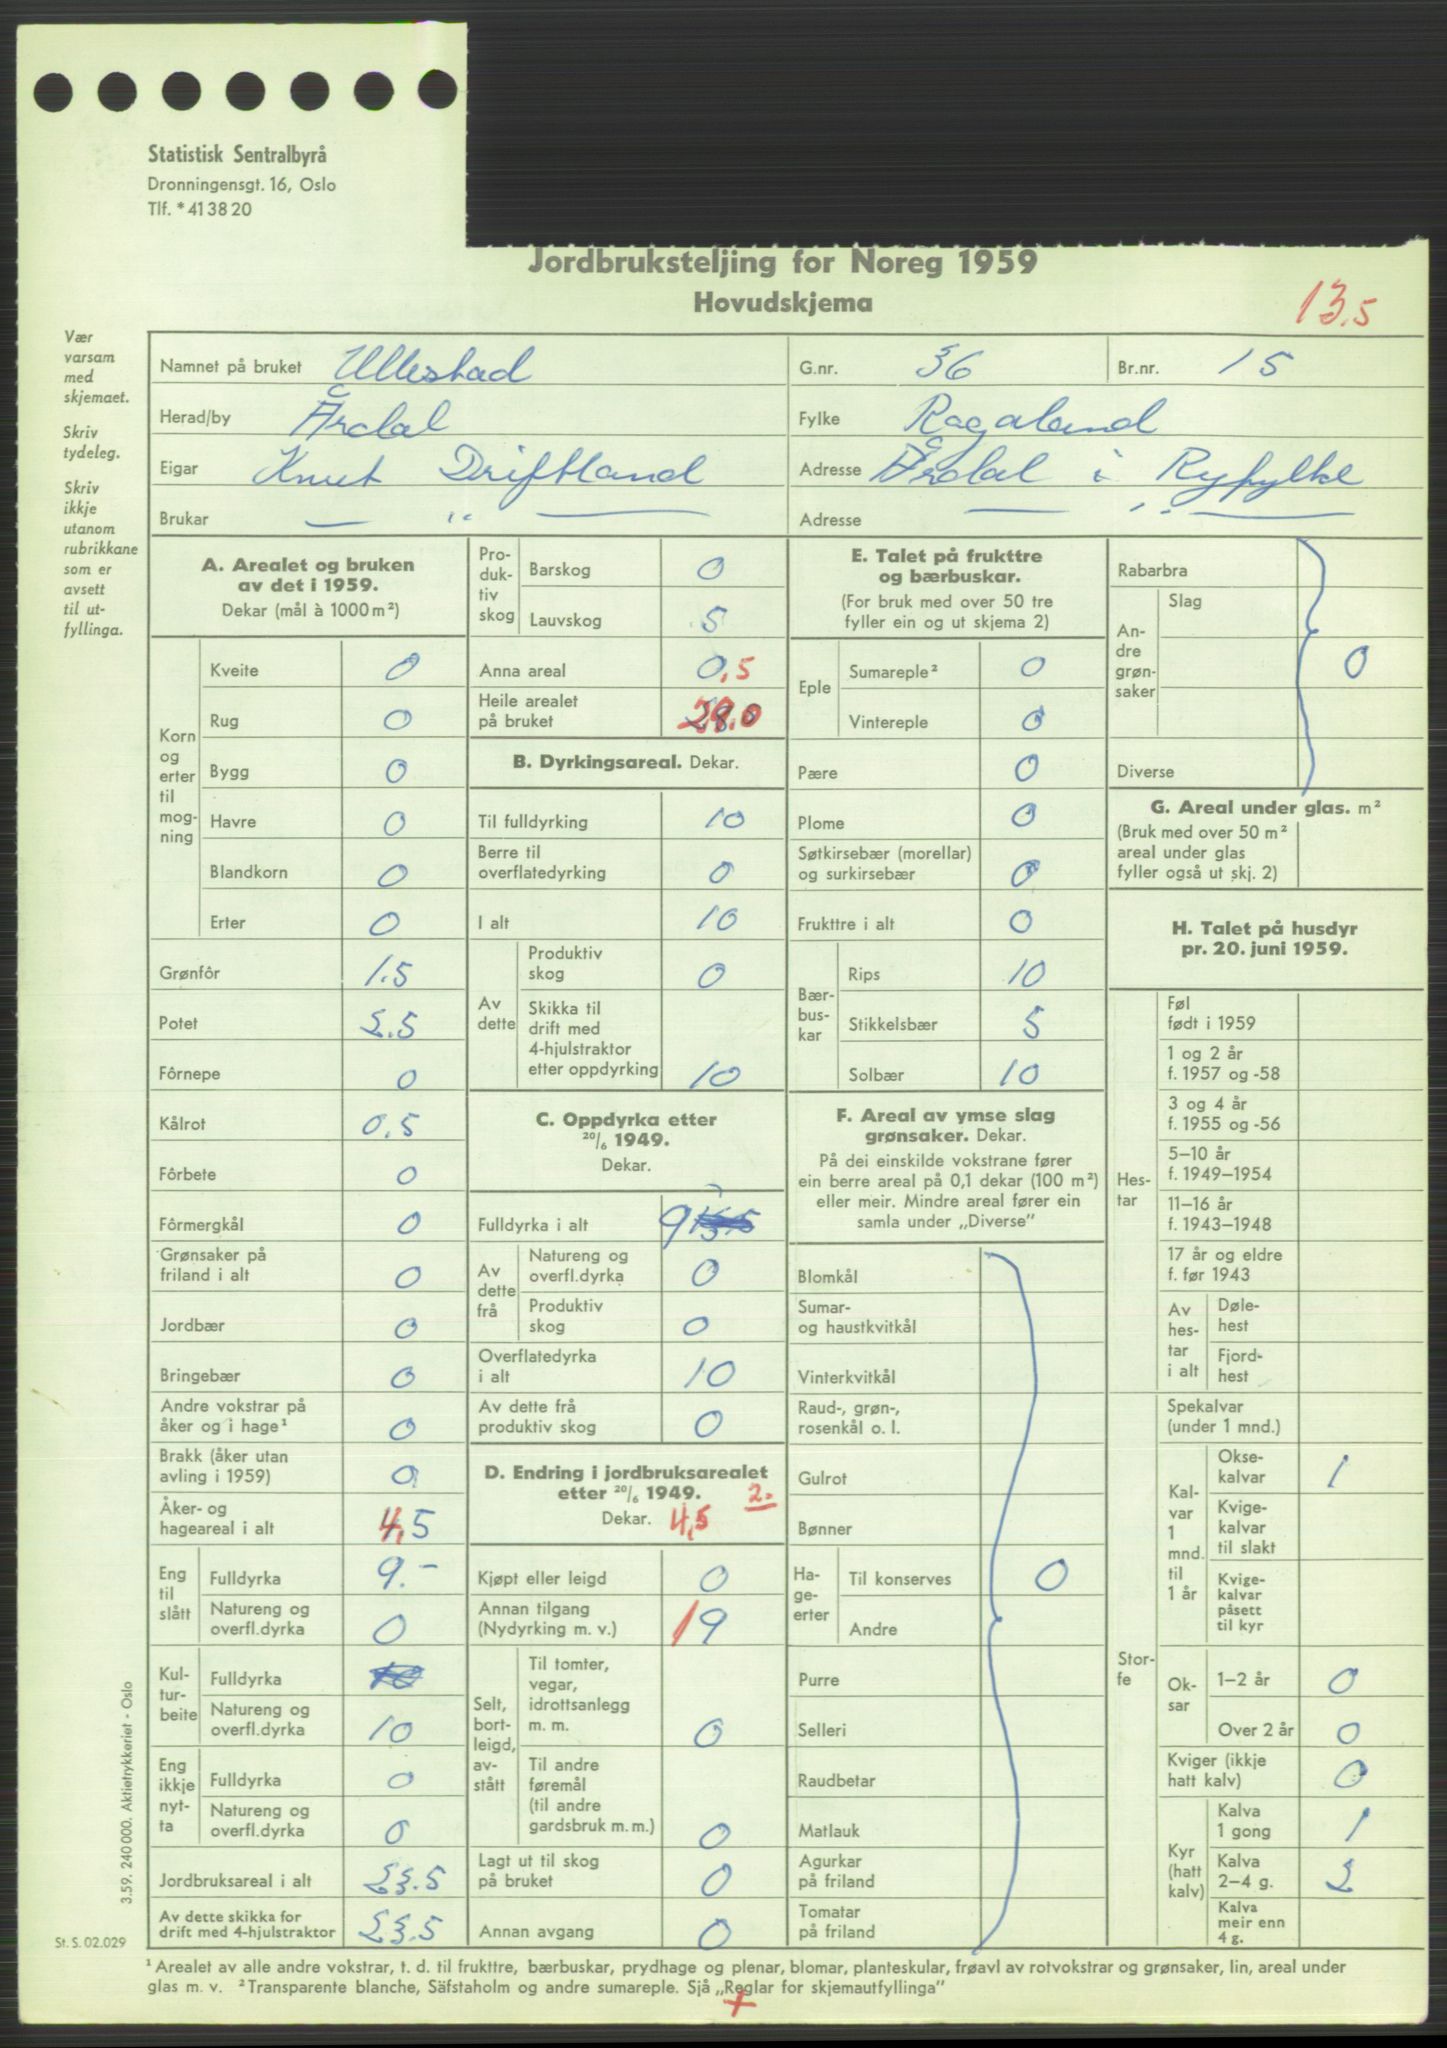 Statistisk Sentralbyrå
Dronningensgt. 16, Oslo
Tlf. *41 38 20
Jordbruksteljing for Noreg 1959
Hovudskjema
13.5
Vær
varsam
med
skjemaet.
Skriv
tydeleg.
Skriv
ikkje
utanom
rubrikkane
som er
avsett
til ut-
fyllinga.
Namnet på bruket Ullestad G.nr. 36 Br.nr. 15
Herad/by Årdal Fylke Rogaland
Eigar Knut Driftland Adresse Årdal i Ryfylke
Brukar — " — Adresse — " —
A. Arealet og bruken
av det i 1959.
Dekar (mål à 1000 m²)
Korn og erter til mog-ning
Kveite 0
Rug 0
Bygg 0
Havre 0
Blandkorn 0
Erter 0
Grønfôr 1.5
Potet 2.5
Fôrnepe 0
Kålrot 0.5
Fôrbete 0
Fôrmergkål 0
Grønsaker på
friland i alt 0
Jordbær 0
Bringebær 0
Andre vokstrar på
åker og i hage¹ 0
Brakk (åker utan
avling i 1959) 0
Åker- og
hageareal i alt 4,5
Eng til slått
Fulldyrka 9.-
Natureng og
overfl.dyrka 0
Kul-tur-beite
Fulldyrka
Natureng og
overfl.dyrka 10
Eng ikkje nyt-ta
Fulldyrka 0
Natureng og
overfl.dyrka 0
Jordbruksareal i alt 23.5
Av dette skikka for
drift med 4-hjulstraktor 23.5
Pro-duk-tiv skog
Barskog 0
Lauvskog 5
Anna areal 0,5
Heile arealet
på bruket 29.0
B. Dyrkingsareal. Dekar.
Til fulldyrking 10
Berre til
overflatedyrking 0
I alt 10
Av dette
Produktiv
skog 0
Skikka til
drift med
4-hjulstraktor
etter oppdyrking 10
C. Oppdyrka etter
20/6 1949.
Dekar.
Fulldyrka i alt 9
Av dette frå
Natureng og
overfl.dyrka 0
Produktiv
skog 0
Overflatedyrka
i alt 10
Av dette frå
produktiv skog 0
D. Endring i jordbruksarealet
etter 20/6 1949. 2.
Dekar. 4,5
Kjøpt eller leigd 0
Annan tilgang
(Nydyrking m. v.) 19
Selt, bort-leigd, av-stått
Til tomter,
vegar,
idrottsanlegg
m. m. 0
Til andre
føremål
(til andre
gardsbruk m. m.) 0
Lagt ut til skog
på bruket 0
Annan avgang 0
E. Talet på frukttre
og bærbuskar.
(For bruk med over 50 tre
fyller ein og ut skjema 2)
Eple
Sumareple² 0
Vintereple 0
Pære 0
Plome 0
Søtkirsebær (morellar)
og surkirsebær 0
Frukttre i alt 0
Bær-bus-kar
Rips 10
Stikkelsbær 5
Solbær 10
F. Areal av ymse slag
grønsaker. Dekar.
På dei einskilde vokstrane fører
ein berre areal på 0,1 dekar (100 m²)
eller meir. Mindre areal fører ein
samla under „Diverse”
Blomkål
Sumar-
og haustkvitkål
Vinterkvitkål
Raud-, grøn-,
rosenkål o. l.
Gulrot
Bønner
Ha-ge-erter
Til konserves 0
Andre
Purre
Selleri
Raudbetar
Matlauk
Agurkar
på friland
Tomatar
på friland
Rabarbra
An-dre grøn-saker
Slag
0
Diverse
G. Areal under glas. m²
(Bruk med over 50 m²
areal under glas
fyller også ut skj. 2)
H. Talet på husdyr
pr. 20. juni 1959.
Hes-tar
Føl
født i 1959
1 og 2 år
f. 1957 og -58
3 og 4 år
f. 1955 og -56
5–10 år
f. 1949–1954
11–16 år
f. 1943–1948
17 år og eldre
f. før 1943
Av hes-tar i alt
Døle-
hest
Fjord-
hest
Stor-fe
Spekalvar
(under 1 mnd.)
Kal-var 1 mnd. til 1 år
Okse-
kalvar 1
Kvige-
kalvar
til slakt
Kvige-
kalvar
påsett
til kyr
Ok-sar
1–2 år 0
Over 2 år 0
Kviger (ikkje
hatt kalv) 0
Kyr (hatt kalv)
Kalva
1 gong 1
Kalva
2–4 g. 2
Kalva
meir enn
4 g.
3.59. 240 000. Aktietrykkeriet - Oslo
St. S. 02.029
¹ Arealet av alle andre vokstrar, t. d. til frukttre, bærbuskar, prydhage og plenar, blomar, planteskular, frøavl av rotvokstrar og grønsaker, lin, areal under
glas m. v. ² Transparente blanche, Säfstaholm og andre sumareple. Sjå „Reglar for skjemautfyllinga”
+